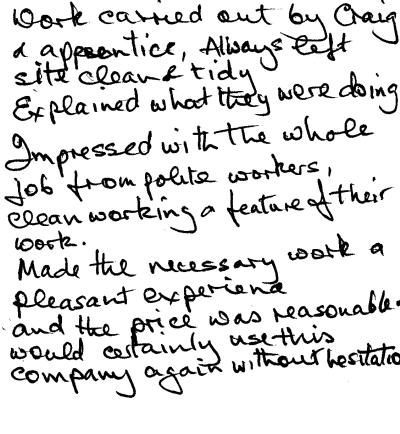 Work carried out by Craig
& apprentice, Always left
site clean & tidy
Explained what they were doing
Impressed with the whole
job from polite workers,
clean working a feature of their
work.
Made the necessary work a
pleasant experience
and the price was reasonable.
would certainly use this
company again without hesitatio